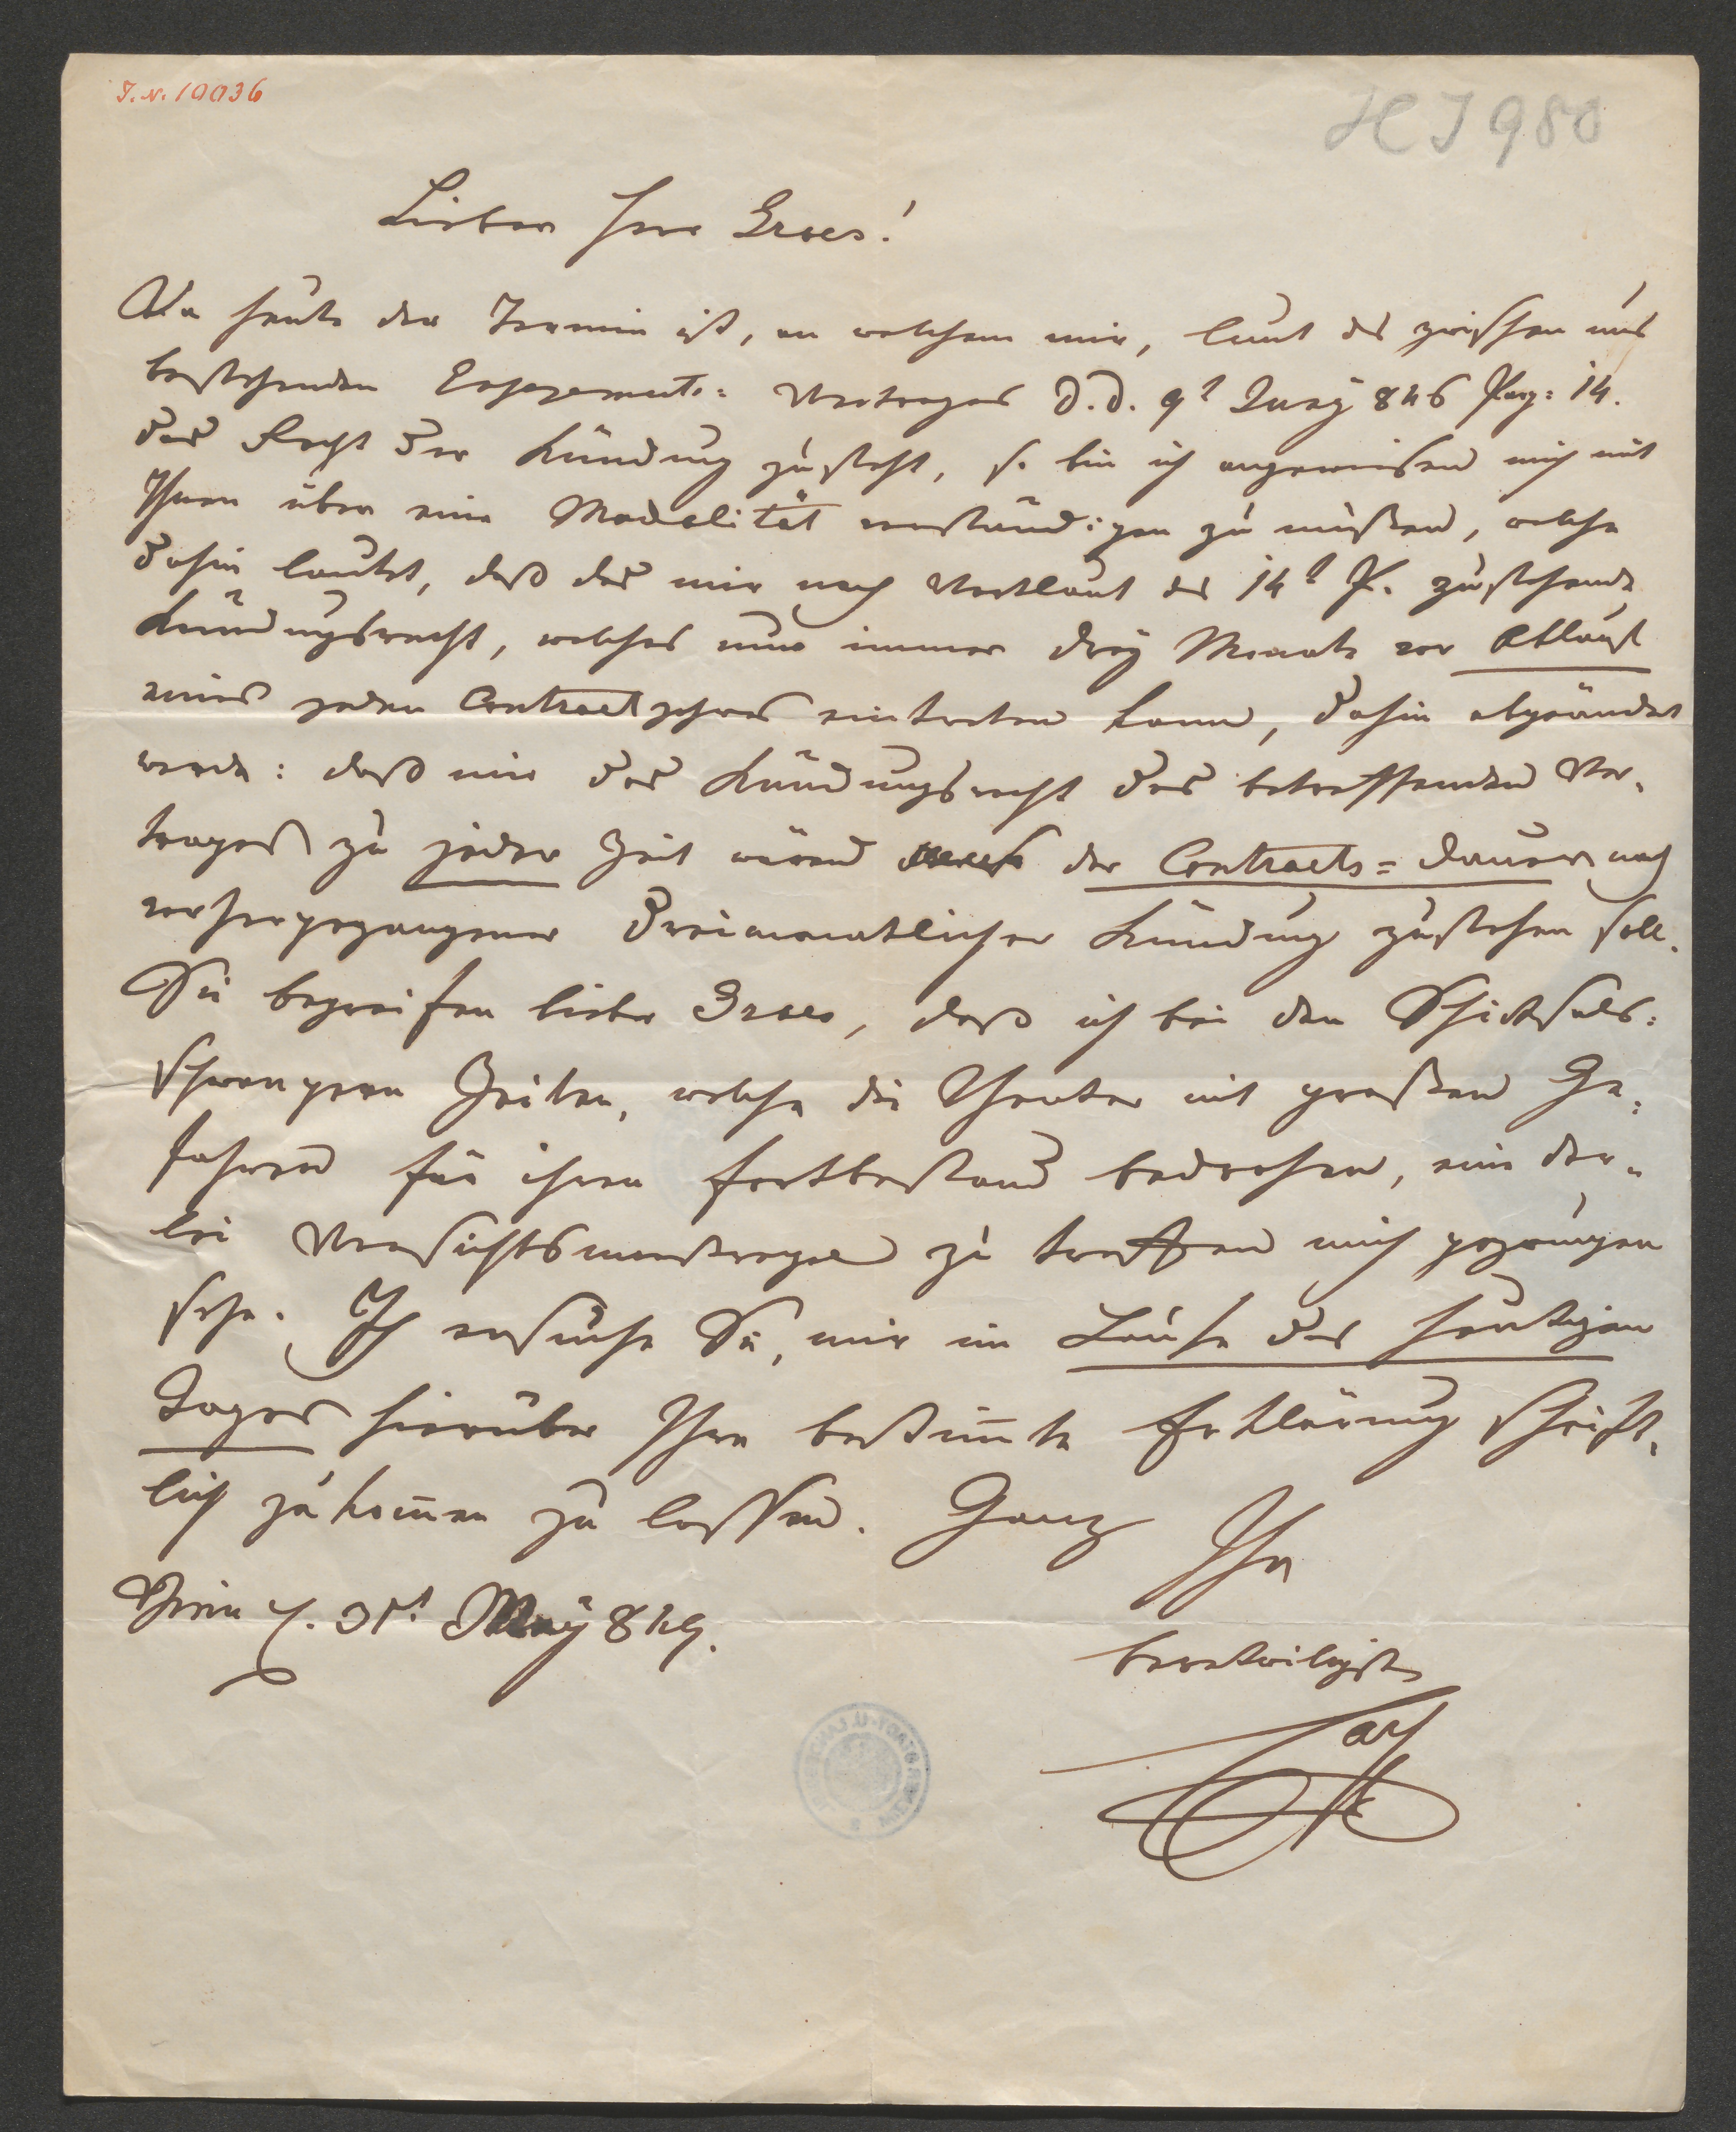 I.N. 19036
H I 980
Lieber Herr Grois!
Da heute der Termin ist, an welchem mir, laut des zwischen uns
bestehenden Engagements= Vertrages d. d. 9t Juny 846 Parg: 14.
das Recht der Kündung zusteht, so bin ich angewiesen mich mit
Ihnen über eine Modalität verständigen zu müßen, welche
dahin lautet, daß das mir nach Wortlaut des 14t P. zustehende
Kündungsrecht, welches nur immer drey Monate vor Ablauf
eines jeden Contractjahres eintreten kann, dahin abgeändert
werde: daß mir das Kündungsrecht des betreffenden Ver-
trages zu jeder Zeit während der Contracts=Dauer nach
vorhergegangener dreimonatlicher Kündung zustehen soll.
Sie begreifen lieber Grois, daß ich bei den Schicksals=
schwangern Zeiten, welche die Theater mit großen Ge=
fahren für ihren Fortbestand bedrohen, eine der=
lei Vorsichtsmaßregel zu treffen mich gezwungen
sehe. Ich ersuche Sie, mir im Laufe des heutigen
Tages hierüber Ihre bestim̄te Erklärung schrift-
lich zukom̄en zu lassen. Ganz
Ihr
Wien 31t May 849.
bereitwilligster
Carl